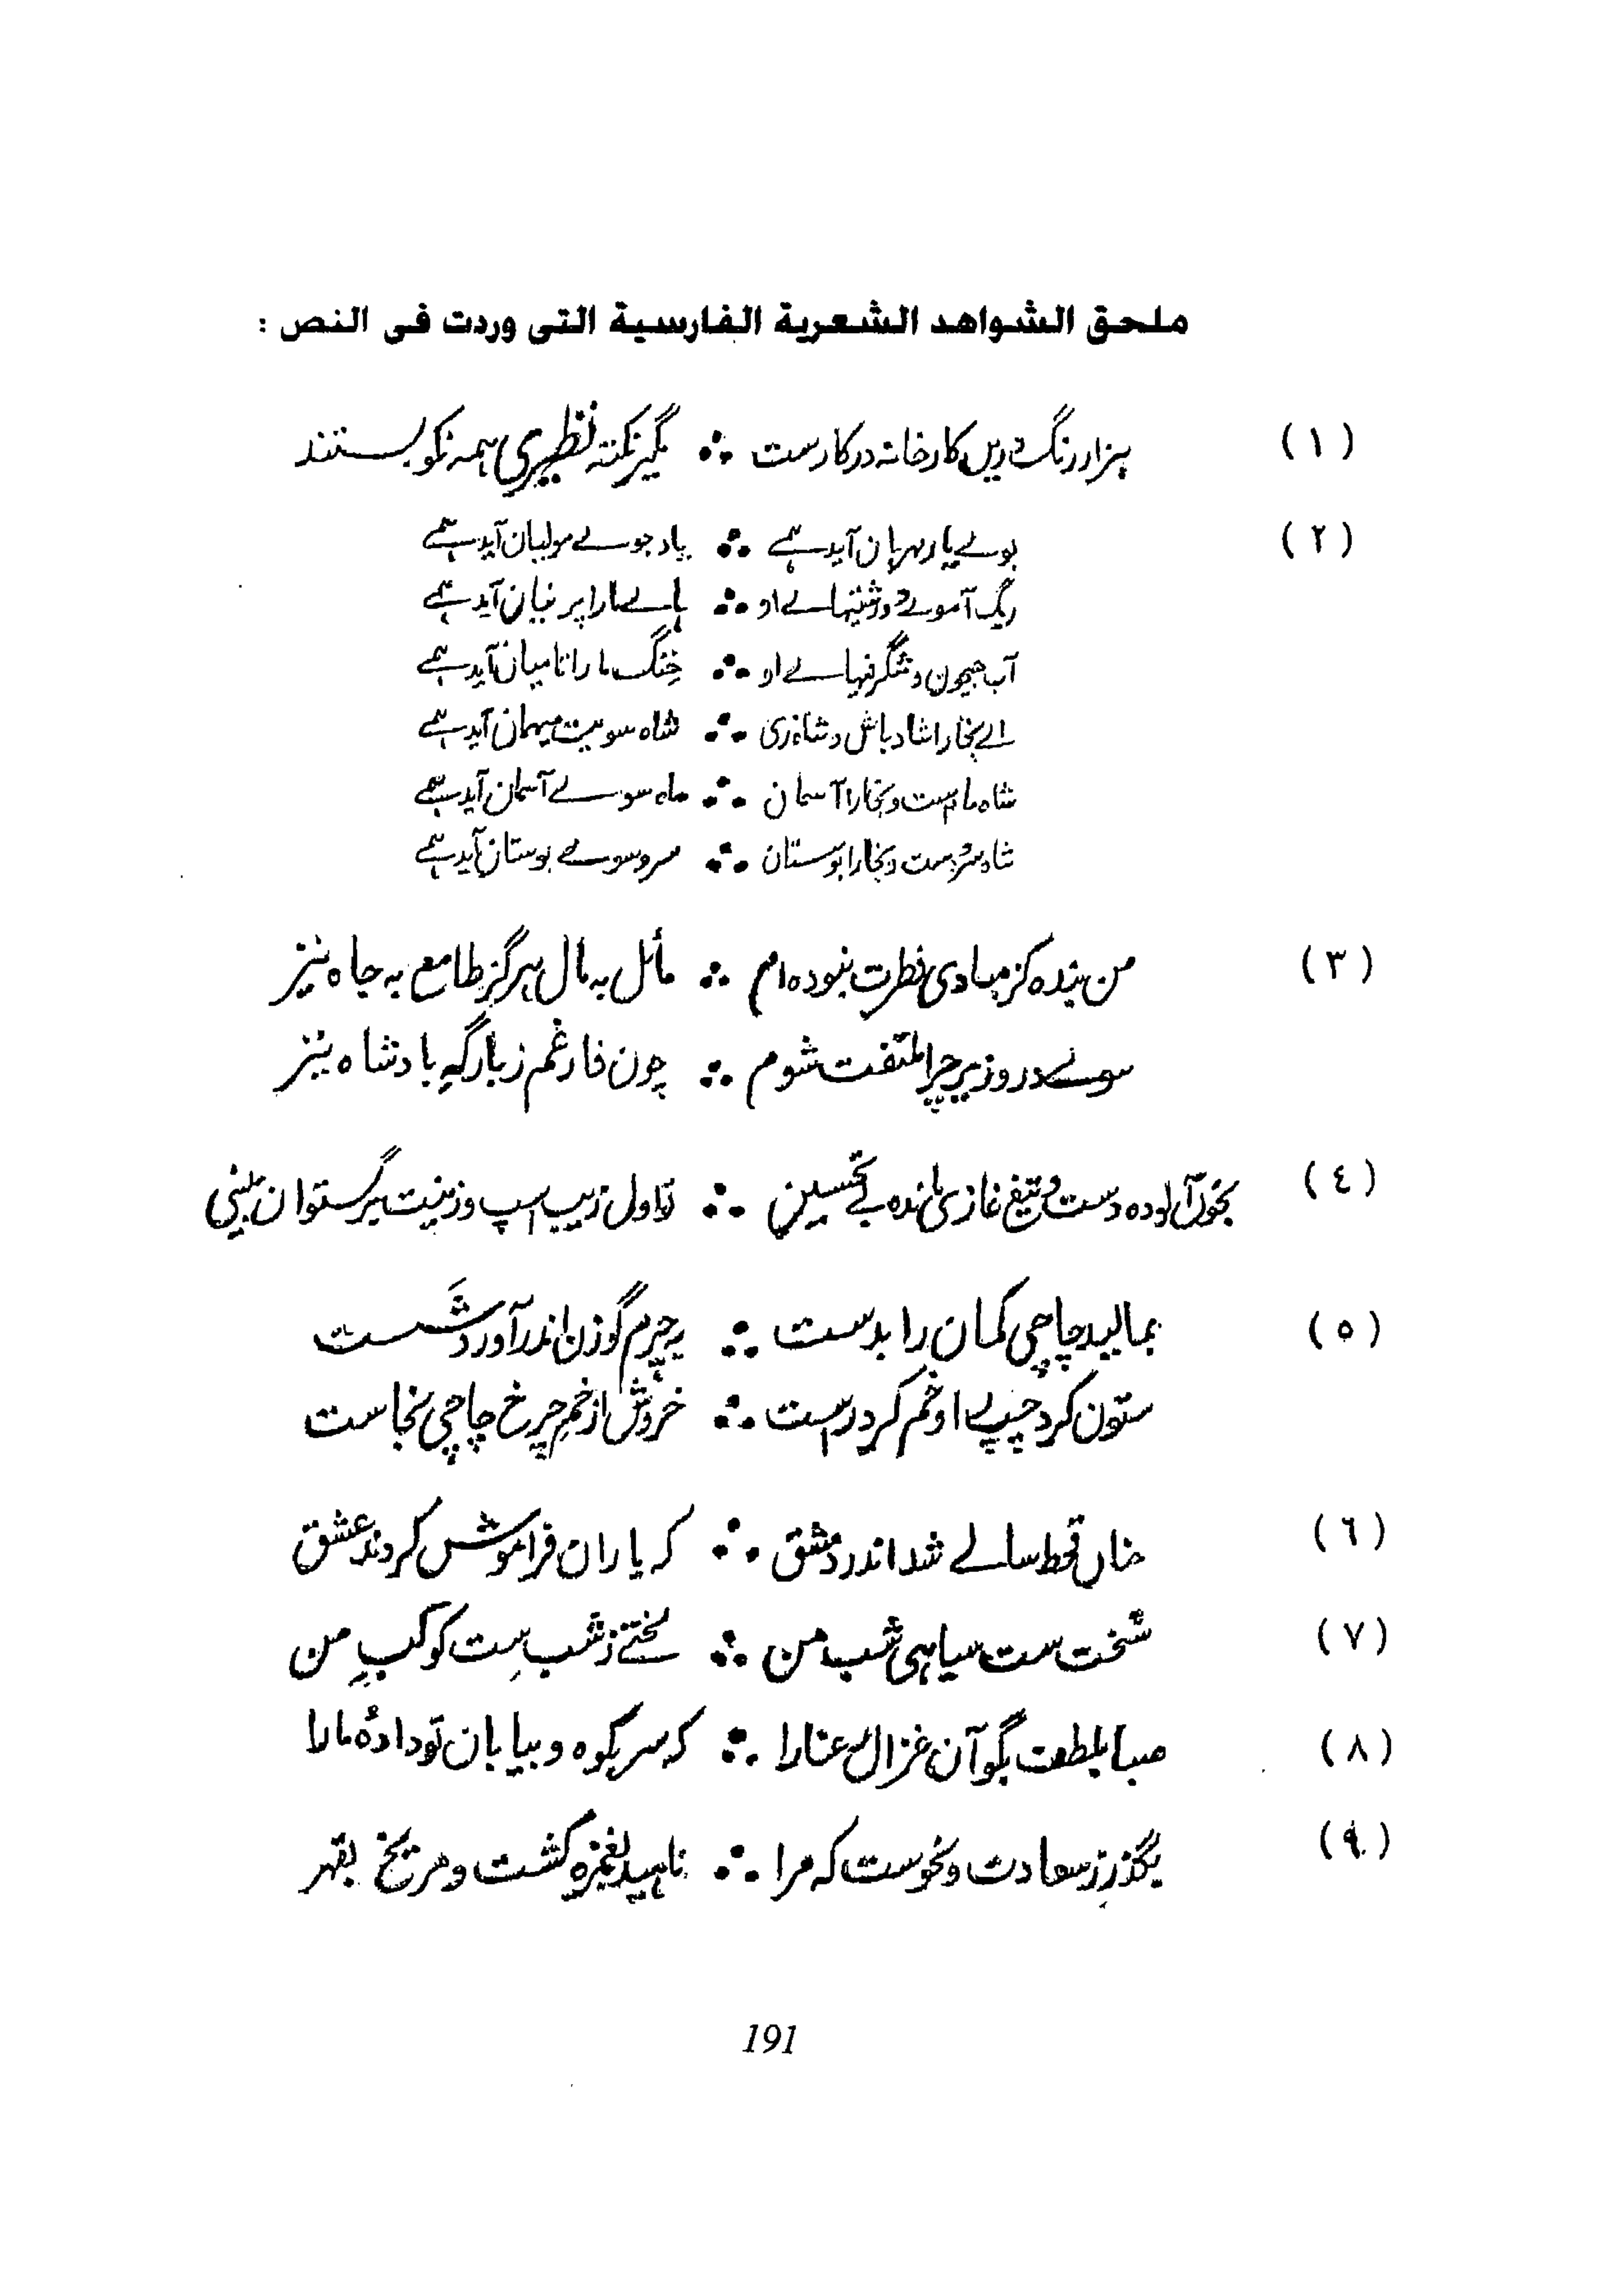 ملحق الشواهد الشعرية الفارسية التى وردت فى النص :
(١) ہزار رنگ دریں کارخانہ درکارست ∴ مگیر نکتہ نظیری ہمہ نکو بستند
(٢) بوے یار مہربان آید ہمے ∴ یاد جوے مولیان آید ہمے
ریگ آموے و درشتیہاے او ∴ پاے مارا پرنیان آید ہمے
آب جیحون و شگرفیہاے او ∴ خنگ ما را تا میان آید ہمے
اے بخارا شاد باش و شاد زی ∴ شاہ سویت میہمان آید ہمے
شاہ ماہ ست و بخارا آسمان ∴ ماہ سوے آسمان آید ہمے
شاہ سرو ست و بخارا بوستان ∴ سرو سوے بوستان آید ہمے
(٣) من بندہ کز مبادی فطرت نبودہ ام ∴ مائل بہ مال ہرگز و طامع بہ جاہ نیز
سوے در وزیر چرا ملتفت شوم ∴ چون فارغم ز بارگہِ بادشاہ نیز
(٤) بخون آلودہ دست و تیغ غازی ماندہ بے تحسین ∴ تو اول زیب اسپ و زینت برگستوان بینی
(٥) بمالید چاچی کمان را بدست ∴ بہ چرم گوزن اندر آورد شَست
ستون کرد چپ و خم کرد راست ∴ خروش از خمِ چرخ چاچی بخاست
(٦) چناں قحط سالے شد اندر دمشق ∴ کہ یاران فراموش کردند عشق
(٧) سخت ست سیاہی شب من ∴ لختے ز شب ست کوکبِ من
(٨) صبا بلطف بگو آن غزال رعنا را ∴ کہ سر بکوہ و بیابان تو دادۂ ما را
(٩) بگذر ز سعادت و نحوست کہ مرا ∴ ناہید بغمزہ کشت و مریخ بقہر
191